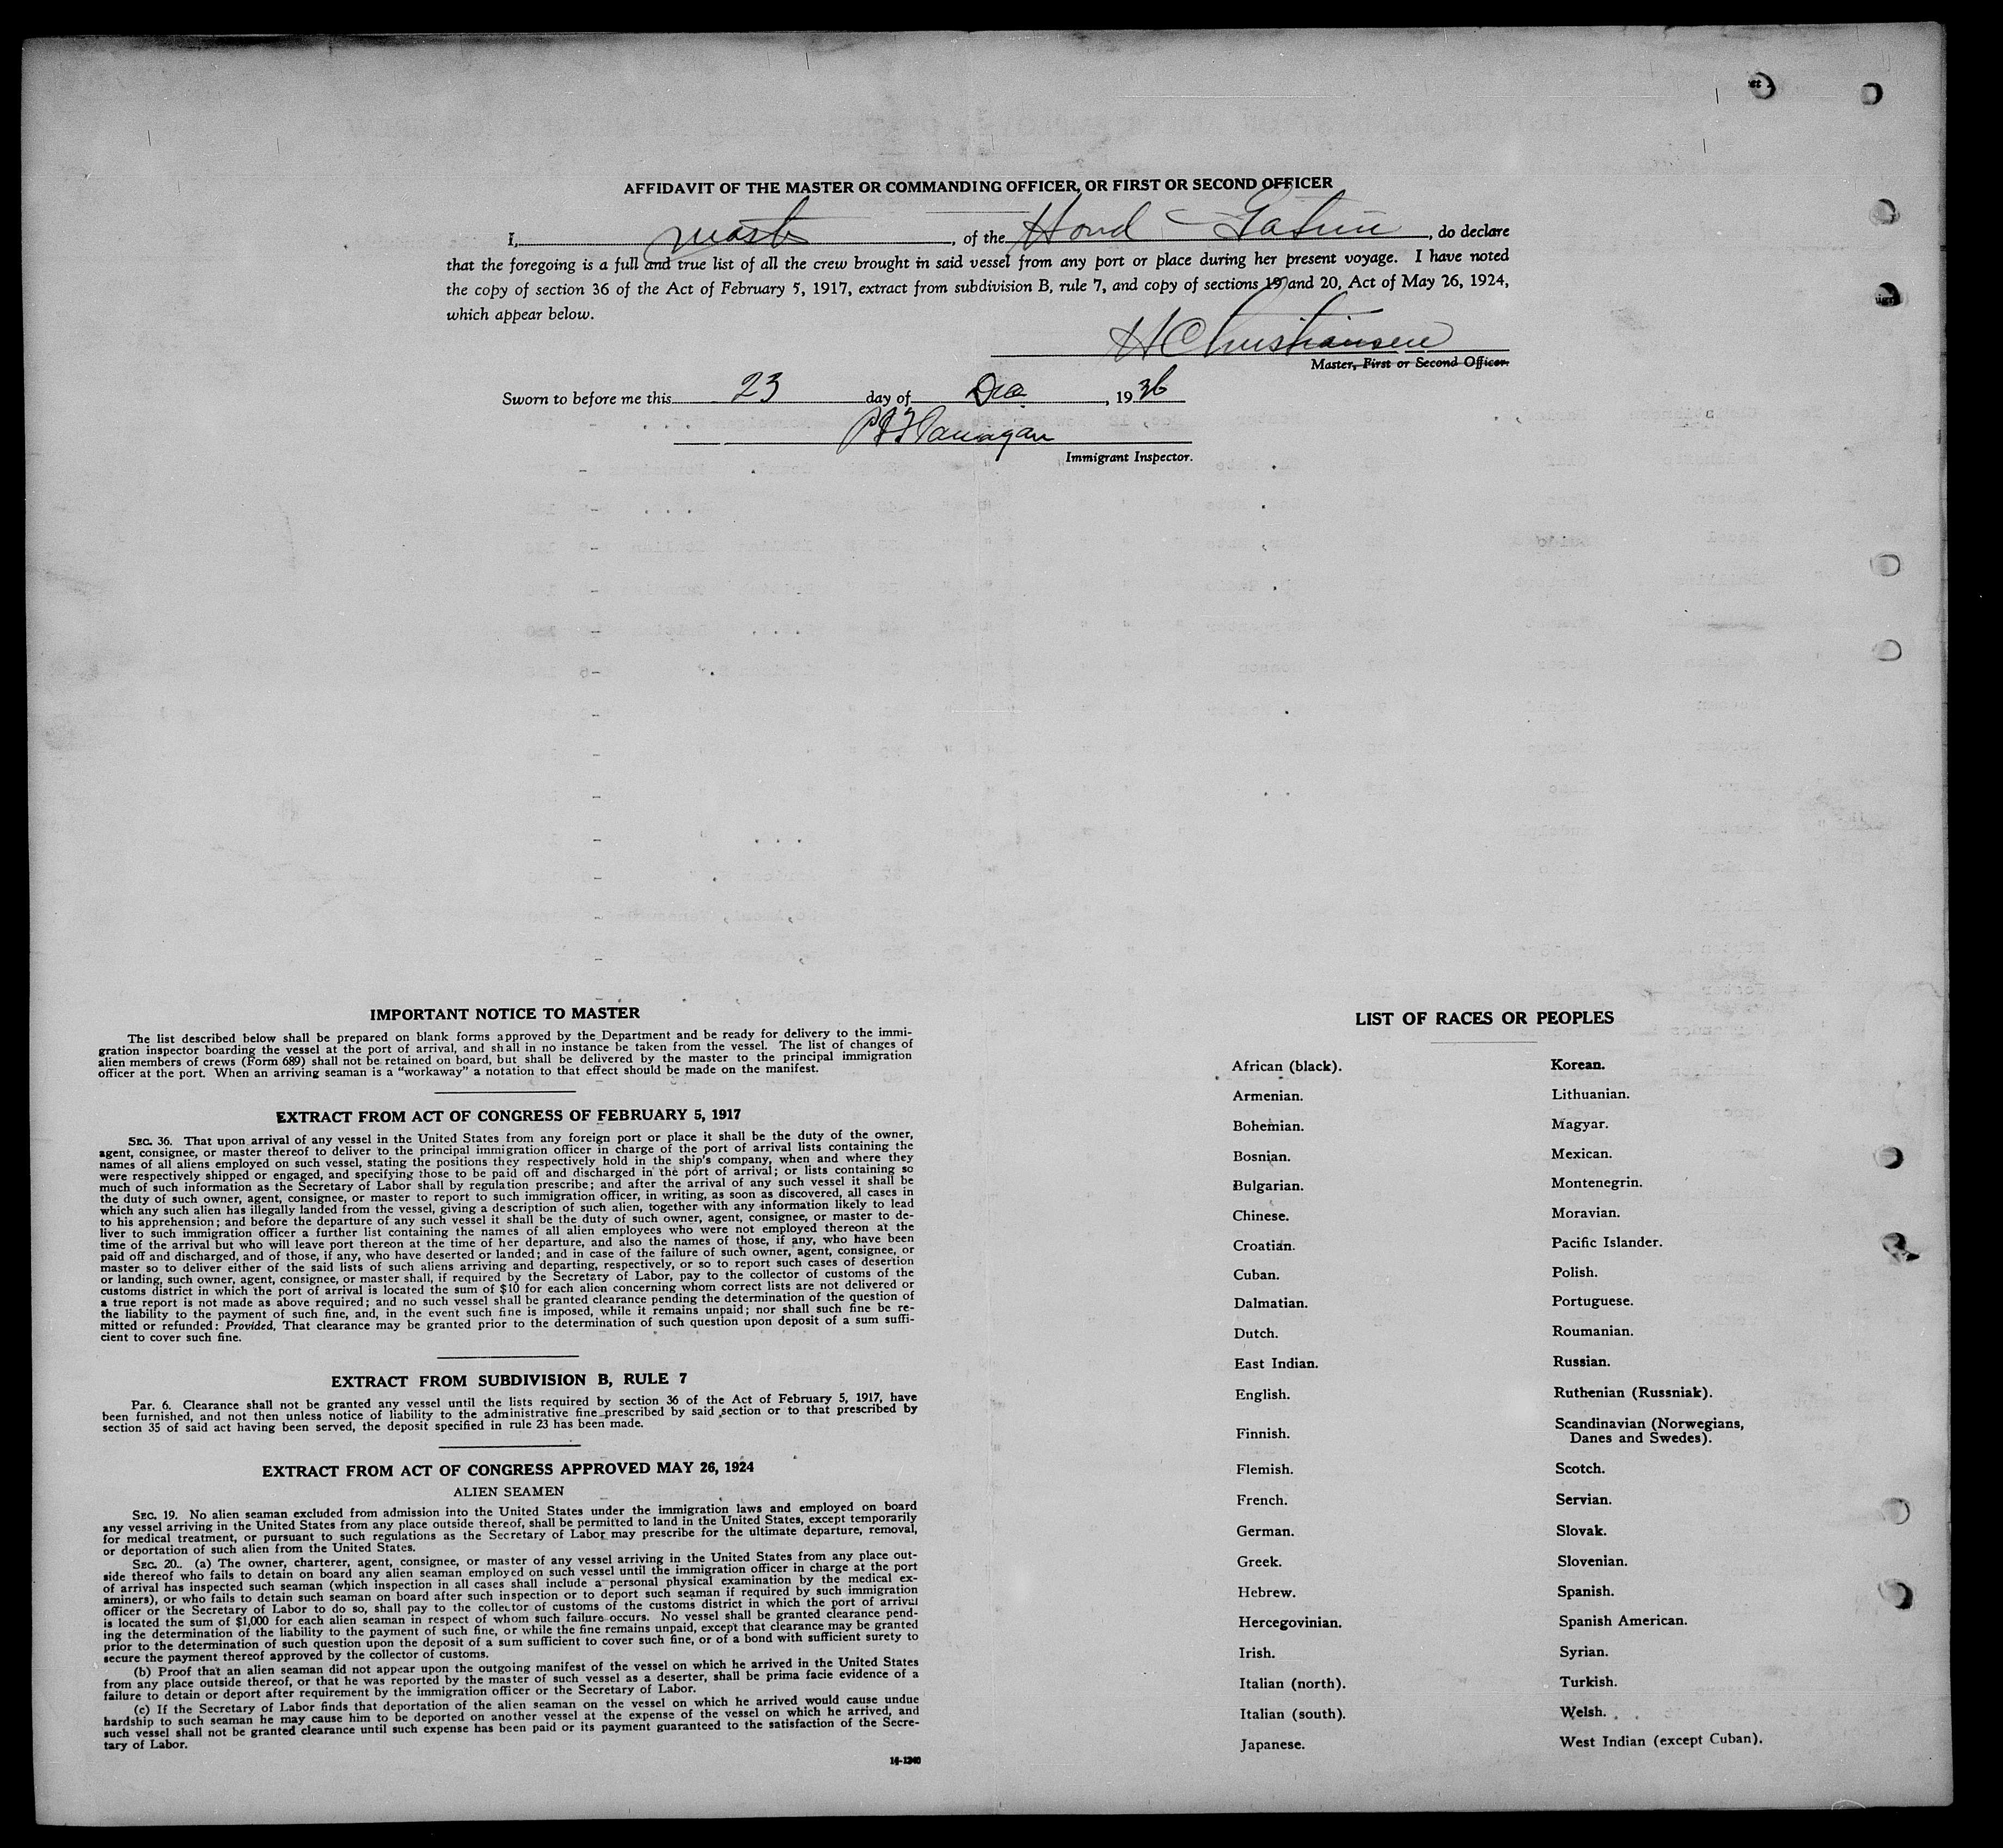 AFFIDAVIT OF THE MASTER OR COMMANDING OFFICER, OR FIRST OR SECOND OFFICER
I, master, of the Hond Gatun, do declare
that the foregoing is a full and true list of all the crew brought in said vessel from any port or place during her present voyage. I have noted
the copy of section 36 of the Act of February 5, 1917, extract from subdivision B, rule 7, and copy of sections 19 and 20, Act of May 26, 1924,
which appear below.
H Christiansen
Master, First or Second Officer.
Sworn to before me this 23 day of Dec, 1936
Flanagan
Immigrant Inspector.
IMPORTANT NOTICE TO MASTER
The list described below shall be prepared on blank forms approved by the Department and be ready for delivery to the immi-
gration inspector boarding the vessel at the port of arrival, and shall in no instance be taken from the vessel. The list of changes of
alien members of crews (Form 689) shall not be retained on board, but shall be delivered by the master to the principal immigration
officer at the port. When an arriving seaman is a "workaway" a notation to that effect should be made on the manifest.
EXTRACT FROM ACT OF CONGRESS OF FEBRUARY 5, 1917
SEC. 36. That upon arrival of any vessel in the United States from any foreign port or place it shall be the duty of the owner,
agent, consignee, or master thereof to deliver to the principal immigration officer in charge of the port of arrival lists containing the
names of all aliens employed on such vessel, stating the positions they respectively hold in the ship's company, when and where they
were respectively shipped or engaged, and specifying those to be paid off and discharged in the port of arrival; or lists containing so
much of such information as the Secretary of Labor shall by regulation prescribe; and after the arrival of any such vessel it shall be
the duty of such owner, agent, consignee, or master to report to such immigration officer, in writing, as soon as discovered, all cases in
which any such alien has illegally landed from the vessel, giving a description of such alien, together with any information likely to lead
to his apprehension; and before the departure of any such vessel it shall be the duty of such owner, agent, consignee, or master to de-
liver to such immigration officer a further list containing the names of all alien employees who were not employed thereon at the
time of the arrival but who will leave port thereon at the time of her departure, and also the names of those, if any, who have been
paid off and discharged, and of those, if any, who have deserted or landed; and in case of the failure of such owner, agent, consignee, or
master so to deliver either of the said lists of such aliens arriving and departing, respectively, or so to report such cases of desertion
or landing, such owner, agent, consignee, or master shall, if required by the Secretary of Labor, pay to the collector of customs of the
customs district in which the port of arrival is located the sum of $10 for each alien concerning whom correct lists are not delivered or
a true report is not made as above required; and no such vessel shall be granted clearance pending the determination of the question of
the liability to the payment of such fine, and, in the event such fine is imposed, while it remains unpaid; nor shall such fine be re-
mitted or refunded: Provided, That clearance may be granted prior to the determination of such question upon deposit of a sum suffi-
cient to cover such fine.
EXTRACT FROM SUBDIVISION B, RULE 7
Par. 6. Clearance shall not be granted any vessel until the lists required by section 36 of the Act of February 5, 1917, have
been furnished, and not then unless notice of liability to the administrative fine prescribed by said section or to that prescribed by
section 35 of said act having been served, the deposit specified in rule 23 has been made.
EXTRACT FROM ACT OF CONGRESS APPROVED MAY 26, 1924
ALIEN SEAMEN
SEC. 19. No alien seaman excluded from admission into the United States under the immigration laws and employed on board
any vessel arriving in the United States from any place outside thereof, shall be permitted to land in the United States, except temporarily
for medical treatment, or pursuant to such regulations as the Secretary of Labor may prescribe for the ultimate departure, removal,
or deportation of such alien from the United States.
SEC. 20. (a) The owner, charterer, agent, consignee, or master of any vessel arriving in the United States from any place out-
side thereof who fails to detain on board any alien seaman employed on such vessel until the immigration officer in charge at the port
of arrival has inspected such seaman (which inspection in all cases shall include a personal physical examination by the medical ex-
aminers), or who fails to detain such seaman on board after such inspection or to deport such seaman if required by such immigration
officer or the Secretary of Labor to do so, shall pay to the collector of customs of the customs district in which the port of arrival
is located the sum of $1,000 for each alien seaman in respect of whom such failure occurs. No vessel shall be granted clearance pend-
ing the determination of the liability to the payment of such fine, or while the fine remains unpaid, except that clearance may be granted
prior to the determination of such question upon the deposit of a sum sufficient to cover such fine, or of a bond with sufficient surety to
secure the payment thereof approved by the collector of customs.
(b) Proof that an alien seaman did not appear upon the outgoing manifest of the vessel on which he arrived in the United States
from any place outside thereof, or that he was reported by the master of such vessel as a deserter, shall be prima facie evidence of a
failure to detain or deport after requirement by the immigration officer or the Secretary of Labor.
(c) If the Secretary of Labor finds that deportation of the alien seaman on the vessel on which he arrived would cause undue
hardship to such seaman he may cause him to be deported on another vessel at the expense of the vessel on which he arrived, and
such vessel shall not be granted clearance until such expense has been paid or its payment guaranteed to the satisfaction of the Secre-
tary of Labor.
14-1240
LIST OF RACES OR PEOPLES
African (black).
Armenian.
Bohemian.
Bosnian.
Bulgarian.
Chinese.
Croatian.
Cuban.
Dalmatian.
Dutch.
East Indian.
English.
Finnish.
Flemish.
French.
German.
Greek.
Hebrew.
Hercegovinian.
Irish.
Italian (north).
Italian (south).
Japanese.
Korean.
Lithuanian.
Magyar.
Mexican.
Montenegrin.
Moravian.
Pacific Islander.
Polish.
Portuguese.
Roumanian.
Russian.
Ruthenian (Russniak).
Scandinavian (Norwegians,
Danes and Swedes).
Scotch.
Servian.
Slovak.
Slovenian.
Spanish.
Spanish American.
Syrian.
Turkish.
Welsh.
West Indian (except Cuban).